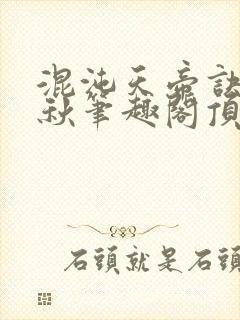 混沌天帝訣
秋筆趣閣頂
石頭就是石頭